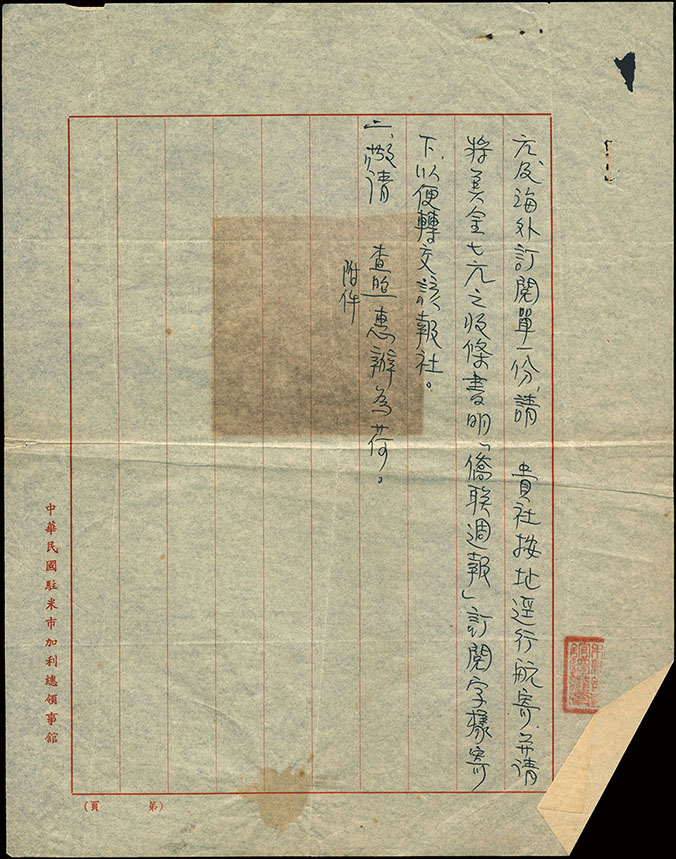 元及海外訂閱單一份，請　貴社按地逕行航寄，并請
將美金七元之收條書明「僑联週報」訂閱字樣寄
下，以便轉交該報社。
二、敬請　查照惠辦為荷。
附件
中華民國駐米市加利總領事館
第　頁）